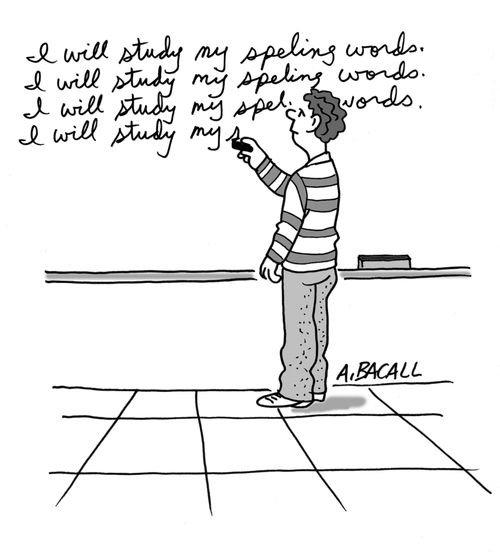 I will study my speling words.
I will study my speling words.
I will study my spel. words.
I will study my s
A. BACALL